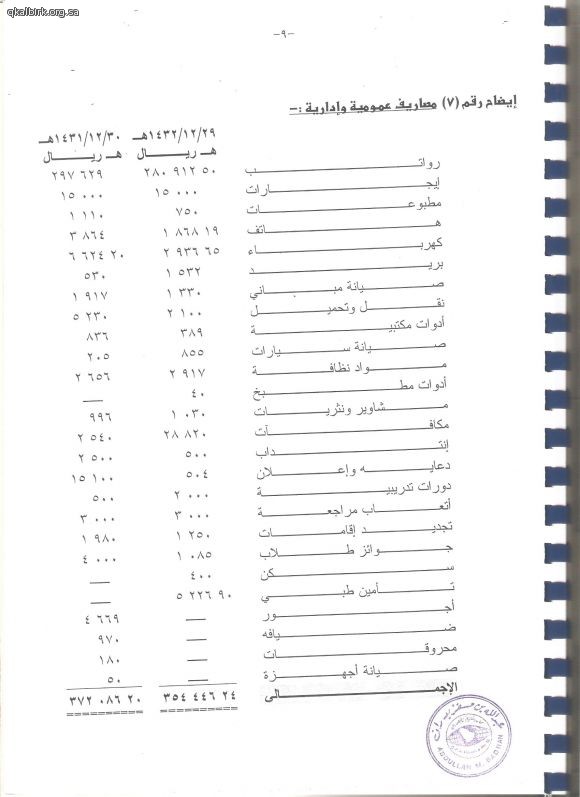 qkalbirk.org.sa
-٩-
إيضاح رقم (٧) مصاريف عمومية وإدارية :-
١٤٣٢/١٢/٢٩هـ ١٤٣١/١٢/٣٠هـ
هـ ريال هـ ريال
رواتب ٢٨٠ ٩١٢ ٥٠ ٢٩٧ ٦٢٩
ايجارات ١٥ ٠٠٠ ١٥ ٠٠٠
مطبوعات ٧٥٠ ١ ١١٠
هاتف ١ ٨٦٨ ١٩ ٣ ٨٦٤
كهرباء ٢ ٩٣٦ ٦٥ ٦ ٦٢٤ ٢٠
بريد ١ ٥٣٢ ٥٣٠
صيانة مباني ١ ٣٣٠ ١ ٩١٧
نقل وتحميل ٢ ١٠٠ ٥ ٢٣٠
أدوات مكتبية ٣٨٩ ٨٣٦
صيانة سيارات ٨٥٥ ٢٠٥
مواد نظافة ٢ ٩١٧ ٢ ٦٥٦
أدوات مطبخ ٤٠ —
مشاوير ونثريات ١ ٠٣٠ ٩٩٦
مكافآت ٢٨ ٨٢٠ ٢ ٥٤٠
إنتداب ٥٠٠ ٢ ٥٠٠
دعايه وإعلان ٥٠٤ ١٥ ١٠٠
دورات تدريبية ٢ ٠٠٠ ٥٠٠
أتعاب مراجعة ٣ ٠٠٠ ٣ ٠٠٠
تجديد إقامات ١ ٢٥٠ ١ ٩٨٠
جوائز طلاب ١ ٠٨٥ ٤ ٠٠٠
سكن ٤٠٠ —
تأمين طبي ٥ ٢٢٦ ٩٠ —
أجور — ٤ ٦٦٩
ضيافه — ٩٧٠
محروقات — ١٨٠
صيانة أجهزة — ٥٠
الإجمالى ٣٥٤ ٤٤٦ ٢٤ ٣٧٢ ٠٨٦ ٢٠
ABDULLAH M. BADHAN